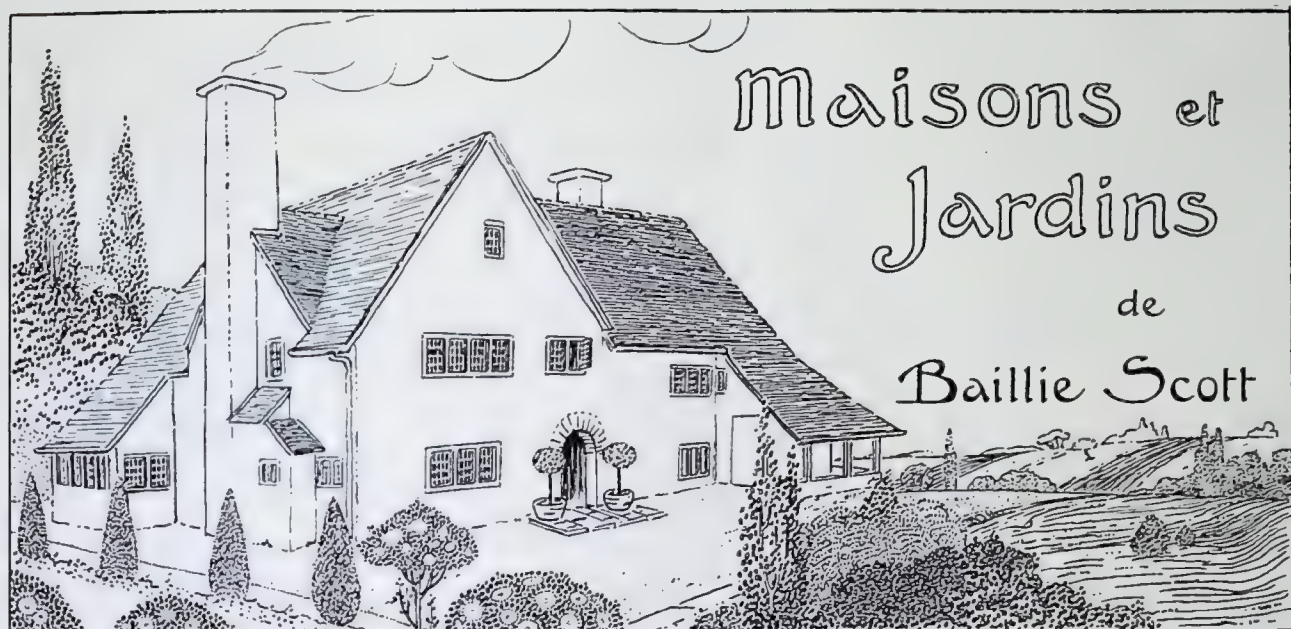 Maisons et
Jardins
de
Baillie Scott